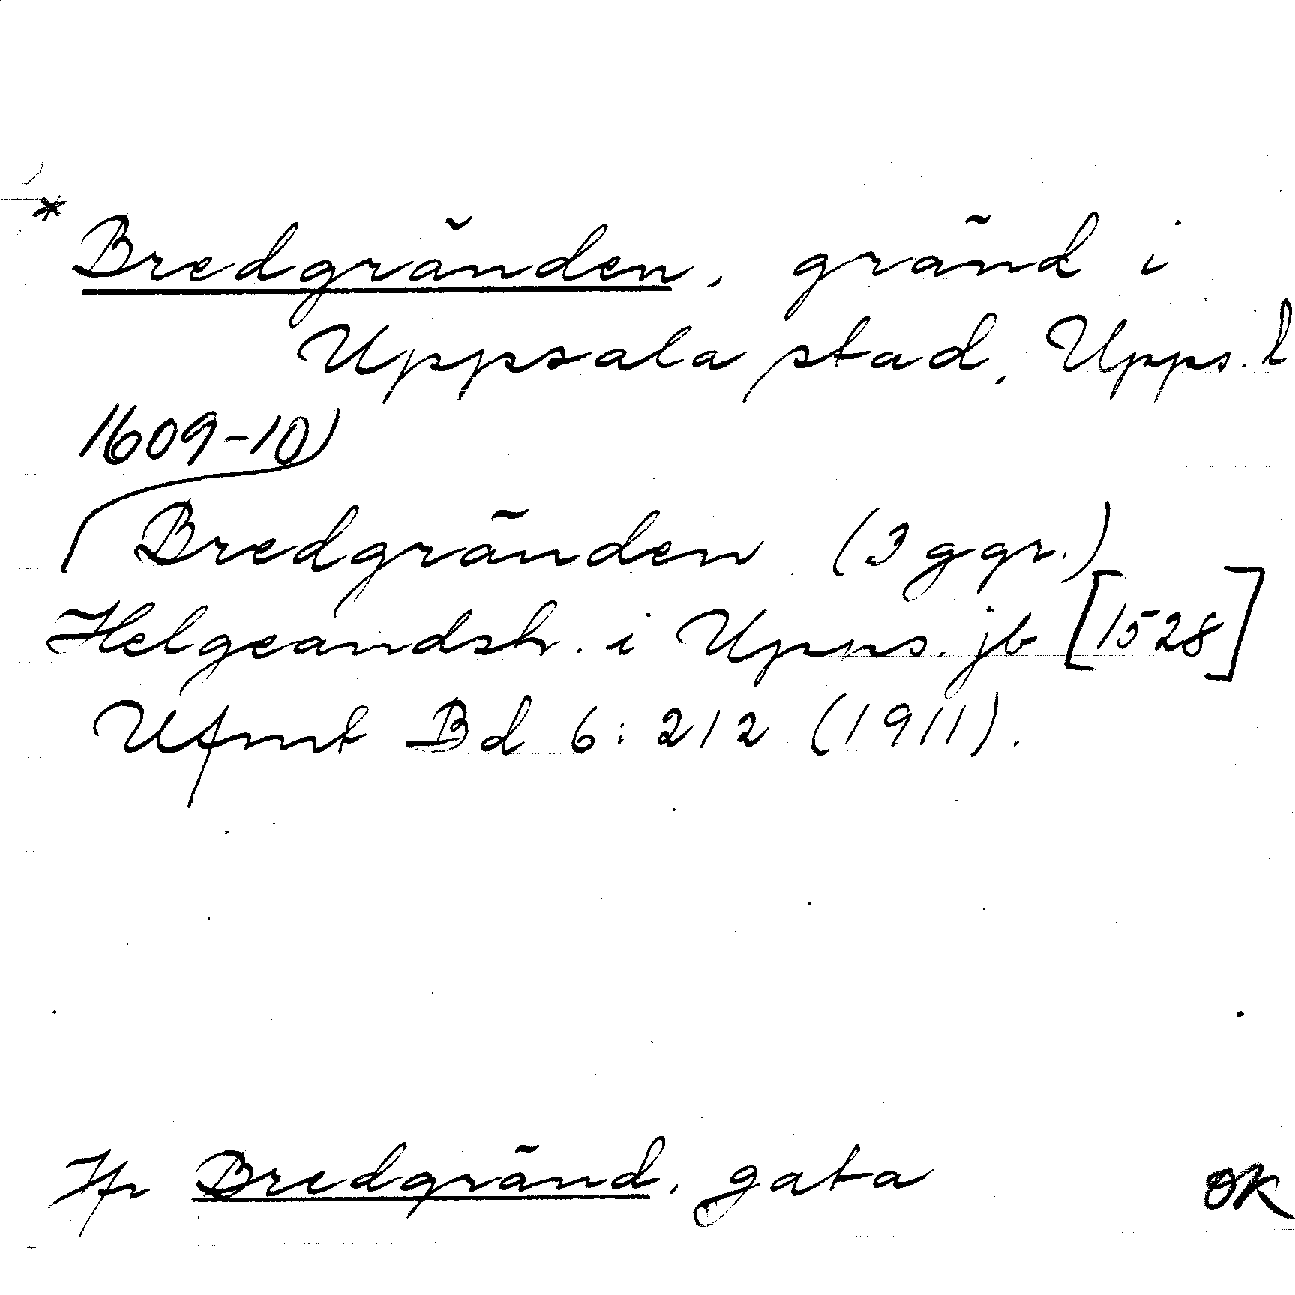 * Bredgränden, gränd i
Uppsala stad, Upps. l
1609-10
Bredgränden (3 ggr.)
Helgeandsh. i Upps. jb [1528]
Ufmt Bd 6:212 (1911).
Jfr Bredgränd, gata
OK